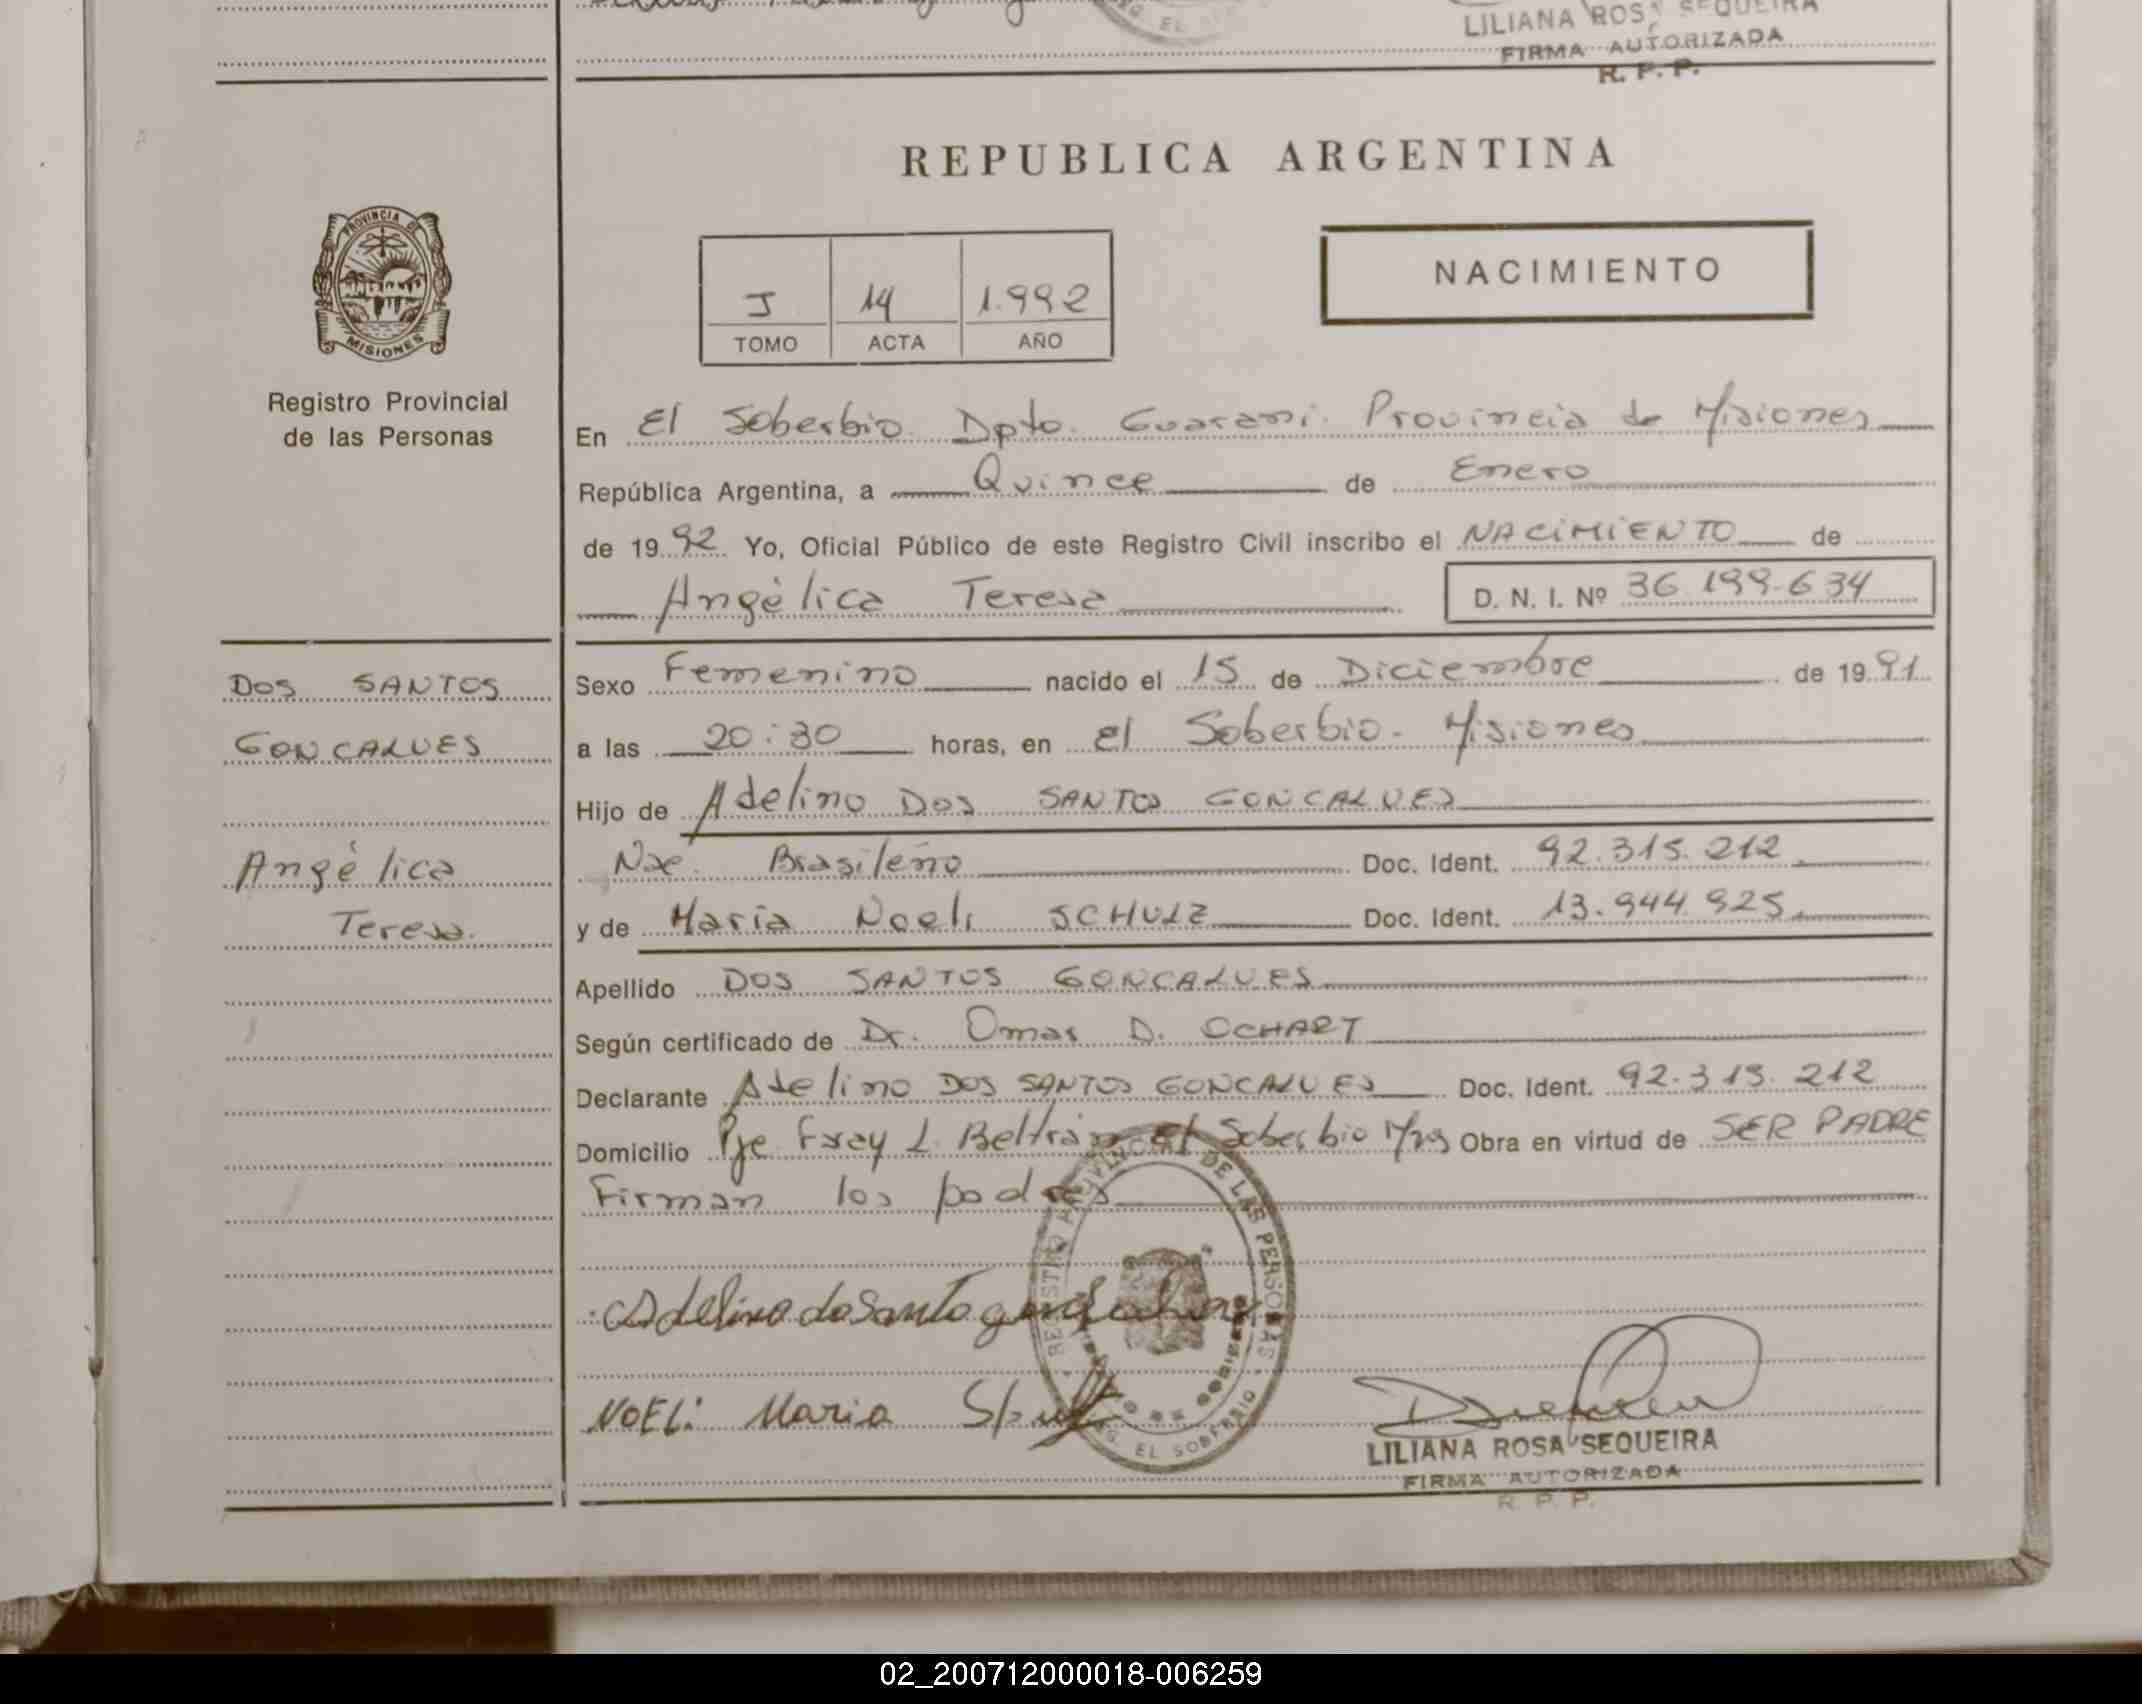 LILIANA ROSA SEQUEIRA
FIRMA AUTORIZADA
R. P. P.
REPUBLICA ARGENTINA
PROVINCIA DE
MISIONES
Registro Provincial
de las Personas
J 14 1.992
TOMO ACTA AÑO
NACIMIENTO
En El Soberbio Dpto. Guarani. Provincia de Misiones
República Argentina, a Quince de Enero
de 1992 Yo, Oficial Público de este Registro Civil inscribo el NACIMIENTO de
Angélica Teresa D. N. I. Nº 36.199.634
DOS SANTOS
GONCALVES
Angélica
Teresa.
Sexo Femenino nacido el 15 de Diciembre de 1991
a las 20:30 horas, en El Soberbio - Misiones
Hijo de Adelino DOS SANTOS GONCALVES
Nac. Brasileño Doc. Ident. 92.315.212.
y de Maria Noeli SCHULZ Doc. Ident. 13.944.925.
Apellido DOS SANTOS GONCALVES
Según certificado de Dr. Omar D. OCHART
Declarante Adelino DOS SANTOS GONCALVES Doc. Ident. 92.315.212
Domicilio Pje Fray L. Beltrán El Soberbio Mns Obra en virtud de SER PADRE
Firman los padres
REGISTRO PROVINCIAL DE LAS PERSONAS
Adelino do Santo
NOELi Maria
EL SOBERBIO
LILIANA ROSA SEQUEIRA
FIRMA AUTORIZADA
R. P. P.
02_200712000018-006259